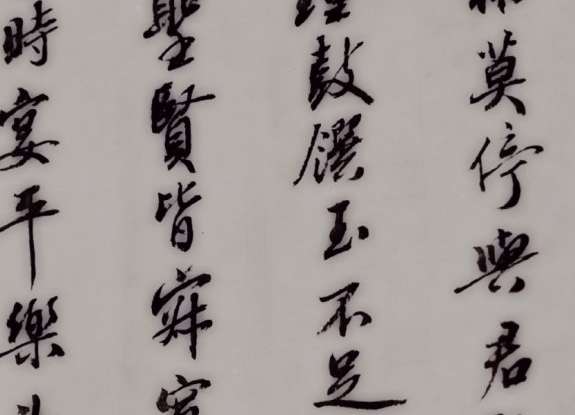 莫停與君
鼓饌玉不足
聖賢皆寂
時宴平樂